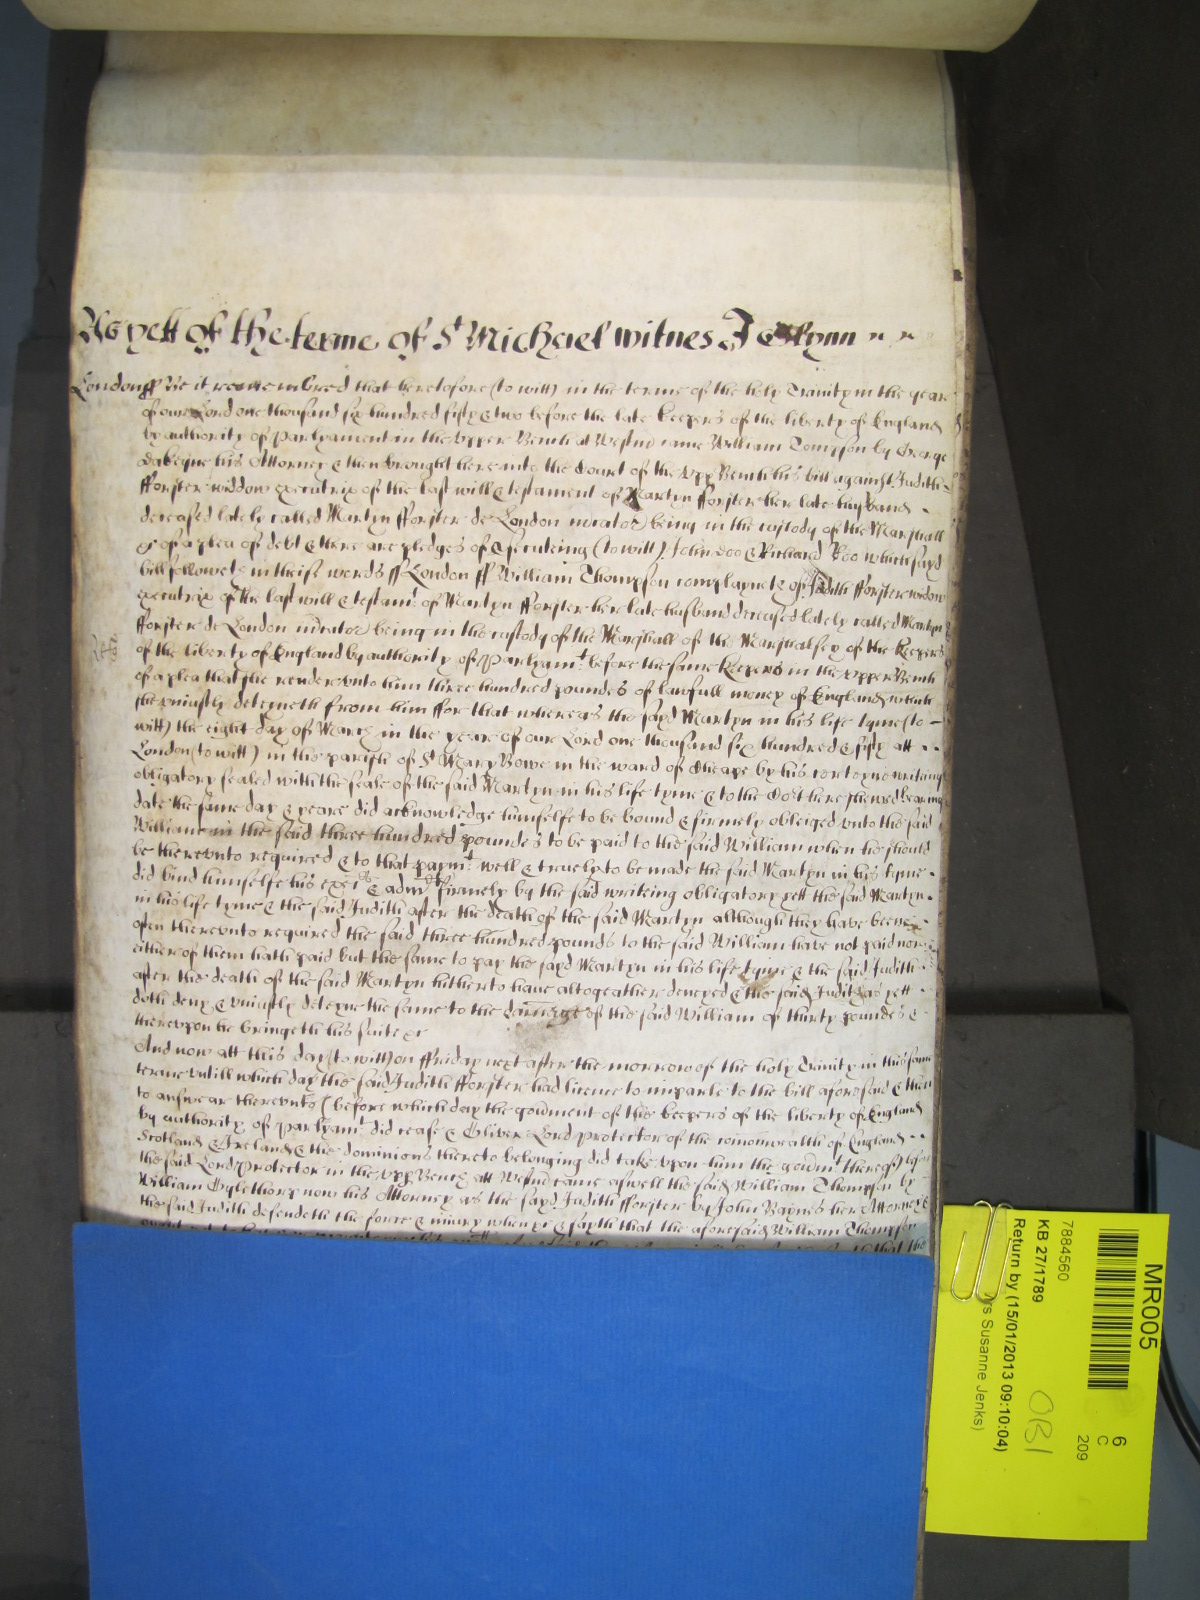 As yett of the terme of St Michael witnes J Askynn
London ss Be it remembred that heretofore (to witt) in the terme of the holy Trinity in the year
of our Lord one thousand six hundred fifty & two before the late keepers of the liberty of England
by authority of Parlyament in the upper Bench at Westmr came William Tompson by George
his Attorney & then brought here into the Court of the upp Bench his bill against Judith
fforster widdow executrix of the last will & testament of Martyn fforster her late husband
deceased lately called Martyn fforster de London being in the custody of the Marshall
&c of a plea of debt & there are pledges of prosecuteing (to witt) John Doo & Richard Roo which sayd
bill followeth in theis words ss London ss William Thompson complayneth of Judith fforster widow
executrix of the last will & testamt of Martyn fforster her late husband deceased lately called Martyn
fforster de London being in the custody of the Marshall of the Marshalsey of the Keepers
of the liberty of England by authority of Parlyamt before the same Keepers in the upper Bench
of a plea that she render unto him three hundred poundes of lawfull money of England which
she uniustly deteyneth from him ffor that whereas the sayd Martyn in his life tyme (to
witt) the eight day of March in the year of our Lord one thousand six hundred & fifty att
London (to witt) in the parish of St Mary Bowe in the ward of Cheape by his certeyne writing
obligatory sealed with the seale of the said Martyn in his life tyme & to the Cort here shewed bearing
date the same day & yeare did acknowledge himselfe to be bound & firmely obleiged unto the said
William in the said three hundred poundes to be paid to the said William when he should
be thereunto required & to that paymt well & truely to be made the said Martyn in his tyme
did bind himselfe his & firmely by the said writeing obligatory yett the said Martyn
in his life tyme & the said Judith after the death of the said Martyn although they have beene
often thereunto required the said three hundred pounds to the said William have not paid nor
either of them hath paid but the same to pay the sayd Martyn in his life tyme & the said Judith
after the death of the said Martyn hitherto have altogeather denyed & the said Judith as yett
doth deny & uniustly deteyne the same to the damage of the said William of thirty poundes &
thereupon he bringeth his suite &c
And now att this day (to witt) on ffriday next after the morrow of the holy Trinity in this same
terme untill which day the said Judith fforster had licence to imparle to the bill aforesaid & then
to answear thereunto (before which day the govment of the keepers of the liberty of England
by authority of Parlyamt did cease & Oliver Lord protector of the comonwealth of England
Scotland & Ireland & the dominions thereto belonging did take upon him the govmt thereof) before
the said Lord protector in the upp Bench att Westmr came aswell the said William Thompson by
William Oglethorp now his Attorney as the sayd Judith fforster by John Baynes her Attorney &
the said Judith defendeth the force & iniury when &c & sayth that the aforesaid William Thompson
MR005
6
C
209
7884560
KB 27/1789
OB1
Return by (15/01/2013 09:10:04)
Susanne Jenks)